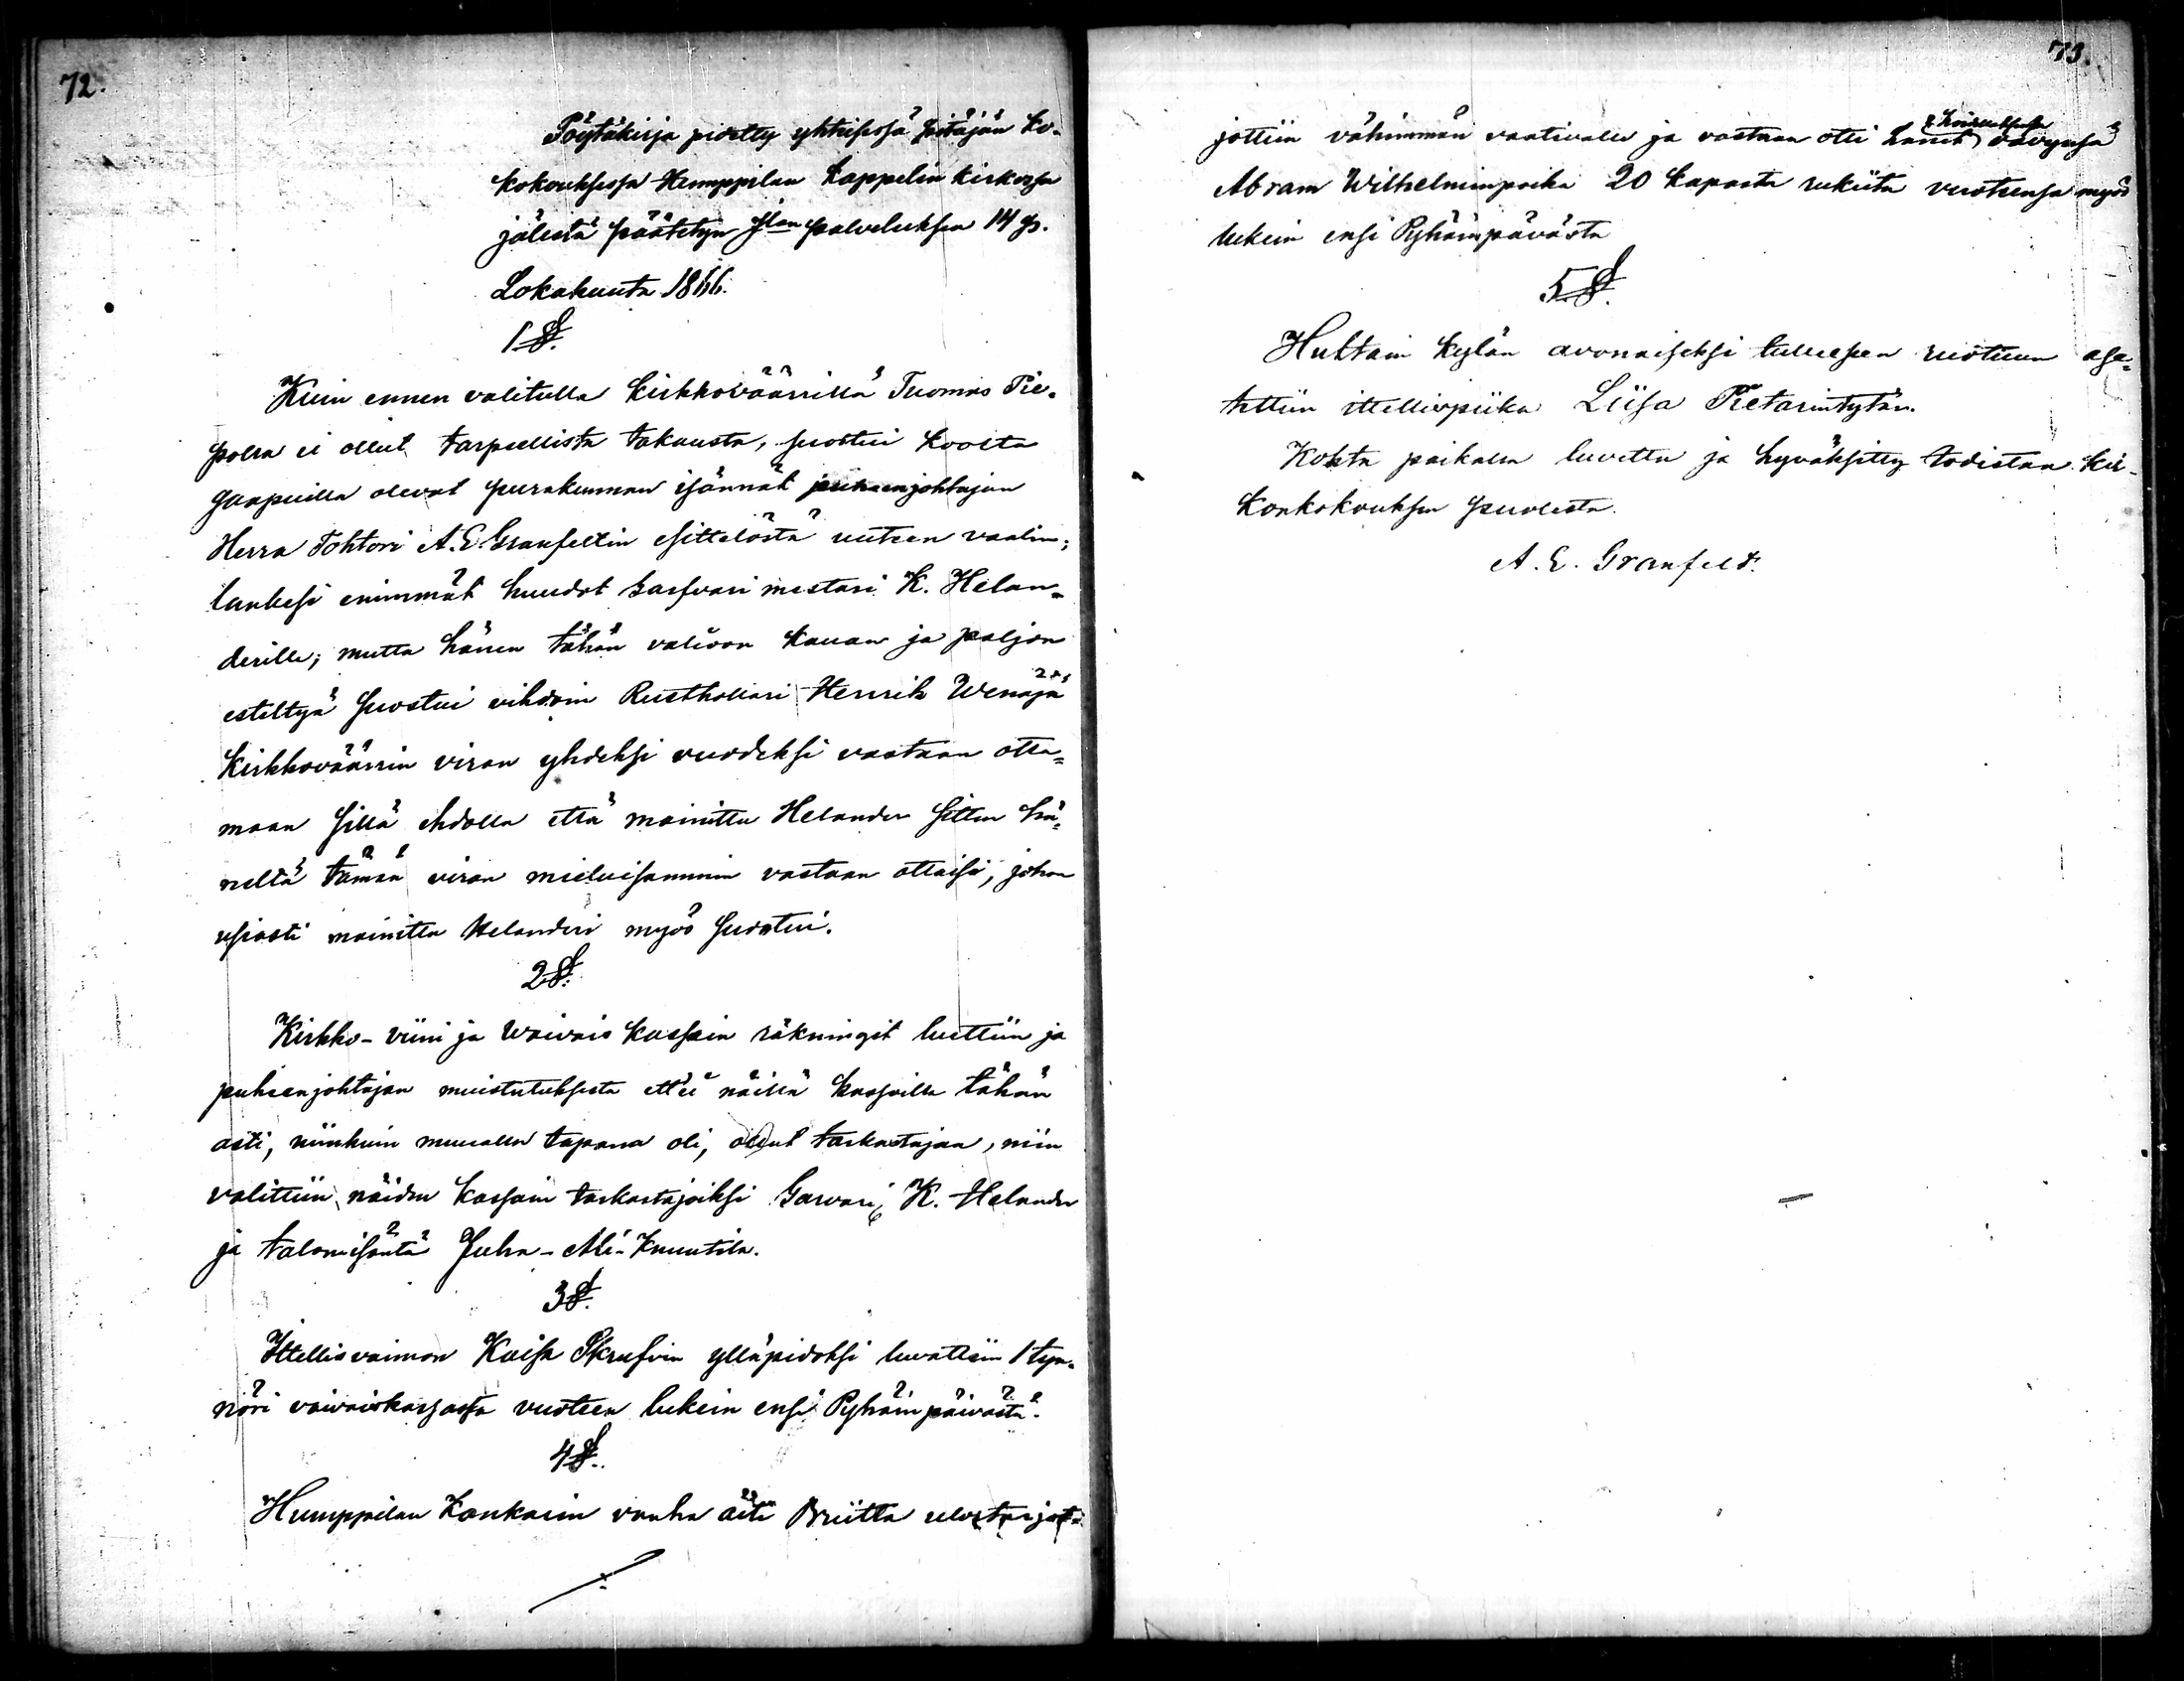 72.
Pöytäkirja pidetty yhteisessä pitäjän ko-
kokouksessa Humppilan Kappelin kirkossa
jälestä päätetyn Jlan palveluksen 14 p.
Lokakuuta 1866.
1 §.
Kuin ennen valitulla Kirkkoväärillä Tuomas Pie-
polla ei ollut tarpeellista takausta, suostui koolta
saapuilla olevat seurakunnan isännät puheenjohtajan
Herra Tohtori A. E. Granfeltin esittelöstä uuteen vaalin;
lankesi enimmät huudot karfvari mestari K. Helan-
derille; mutta hänen tähän valioon kauan ja paljon
esteltyä suostui vihdoin Rusthollari Henrik Wenäjä
Kirkkoväärin viran yhdeksi vuodeksi vastaan otta-
maan sillä ehdolla että mainittu Helander sitten hä-
neltä tämän viran mieluisammin vastaan ottaisi, johon
usiasti mainittu Helanderi myös suostui.
2 §.
Kirkko- viini ja Waivais kassain räkningit luettiin ja
puheenjohtajan muistutuksesta ett'ei näillä kassoilla tähän
asti, niinkuin muualla tapana oli, ollut tarkastajaa, niin
valittiin näiden kassain tarkastajoiksi Garvari K. Helander
ja talonisäntä Juha-Ali-Knuutila.
3 §.
Ittellisvaimon Kaisa Skrufvin ylläpidoksi luvattiin 1 tyn-
nöri vaivaiskassasta vuoteen lukein ensi Pyhäinpäivästä.
4 §.
Humppilan Kankarin vanha äiti Briitta ulostarjot-
73.
jottiin vähimmän vaativalle ja vastaan otti hänet vävynsä
Abram Wilhelminpoika 20 kapasta rukiita vuoteensa myös
lukein ensi Pyhäinpävästa
5 §.
Huhtain kylän avonaiseksi tulleseen ruotuun ase-
tettiin ittellispiika Liisa Pietarintytär.
Kohta paikalla luvettu ja hyväksitty todistaa kir-
konkokouksen puolesta.
A. E. Granfelt.